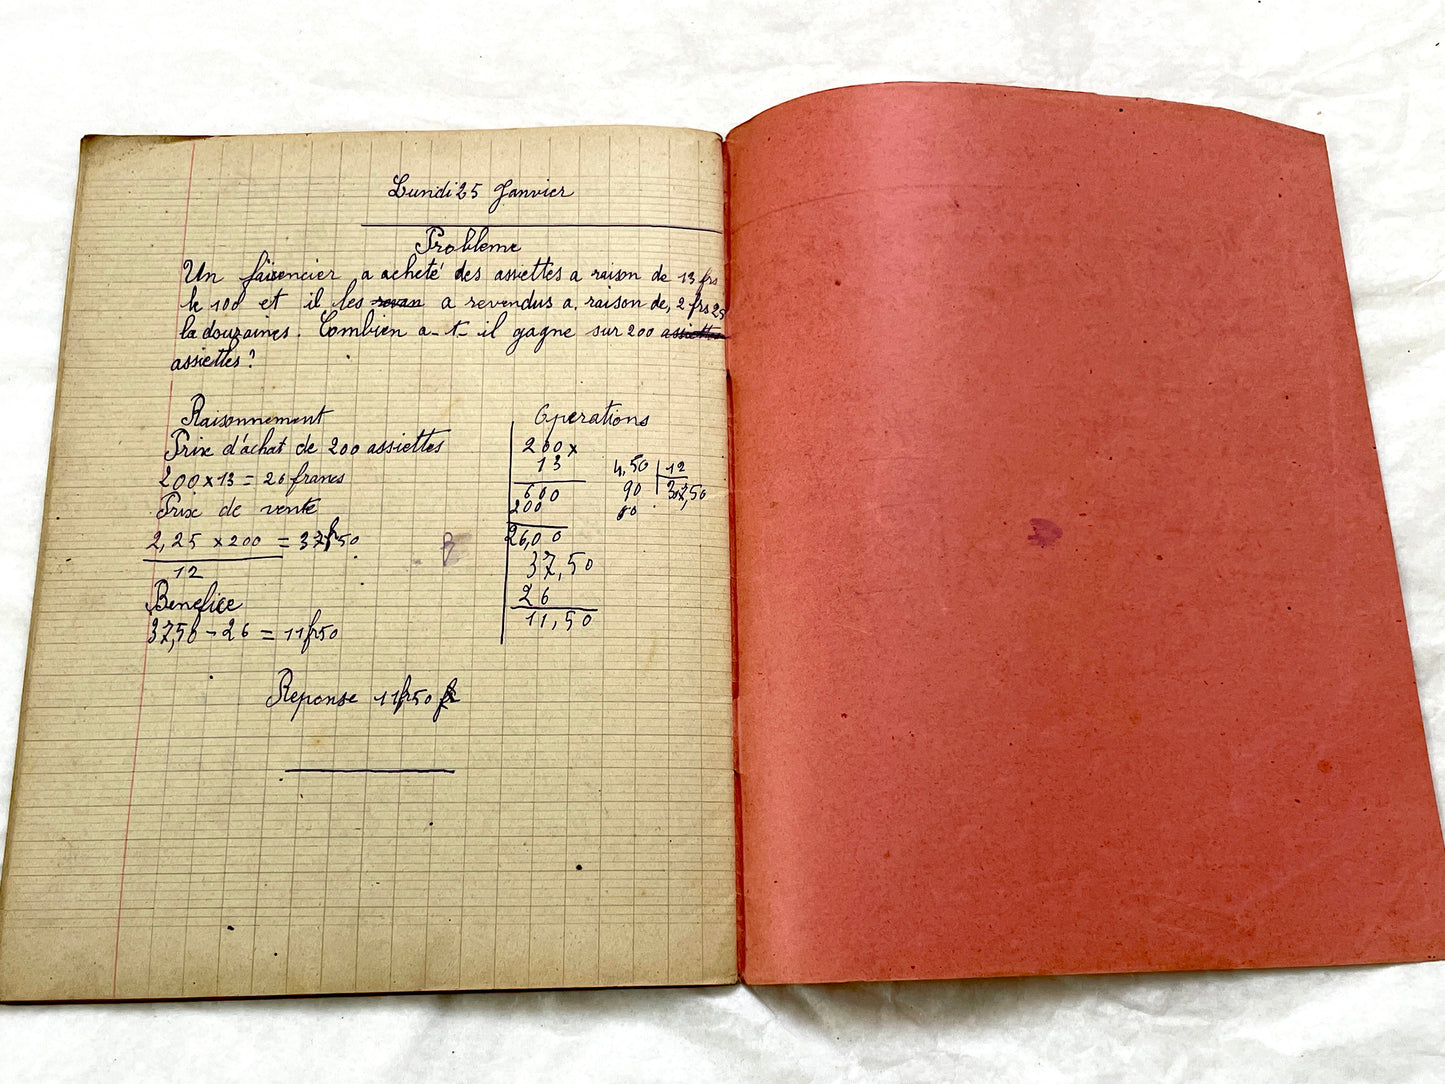 Lundi 25 Janvier
Probleme
Un faïencier a acheté des assiettes a raison de 13 frs
le 100 et il les revan a revendus a raison de, 2 frs 25
la douzaines. Combien a-t-il gagne sur 200 assiettes
assiettes?
Raisonnement
Prix d'achat de 200 assiettes
200 x 13 = 26 francs
Prix de vente
2,25 x 200 = 37f50
12
Benefice
37,50 - 26 = 11fr50
Reponse 11fr50
Operations
200 x
13
600
200
26,00
37,50
26
11,50
4,50 12
90 37,50
60